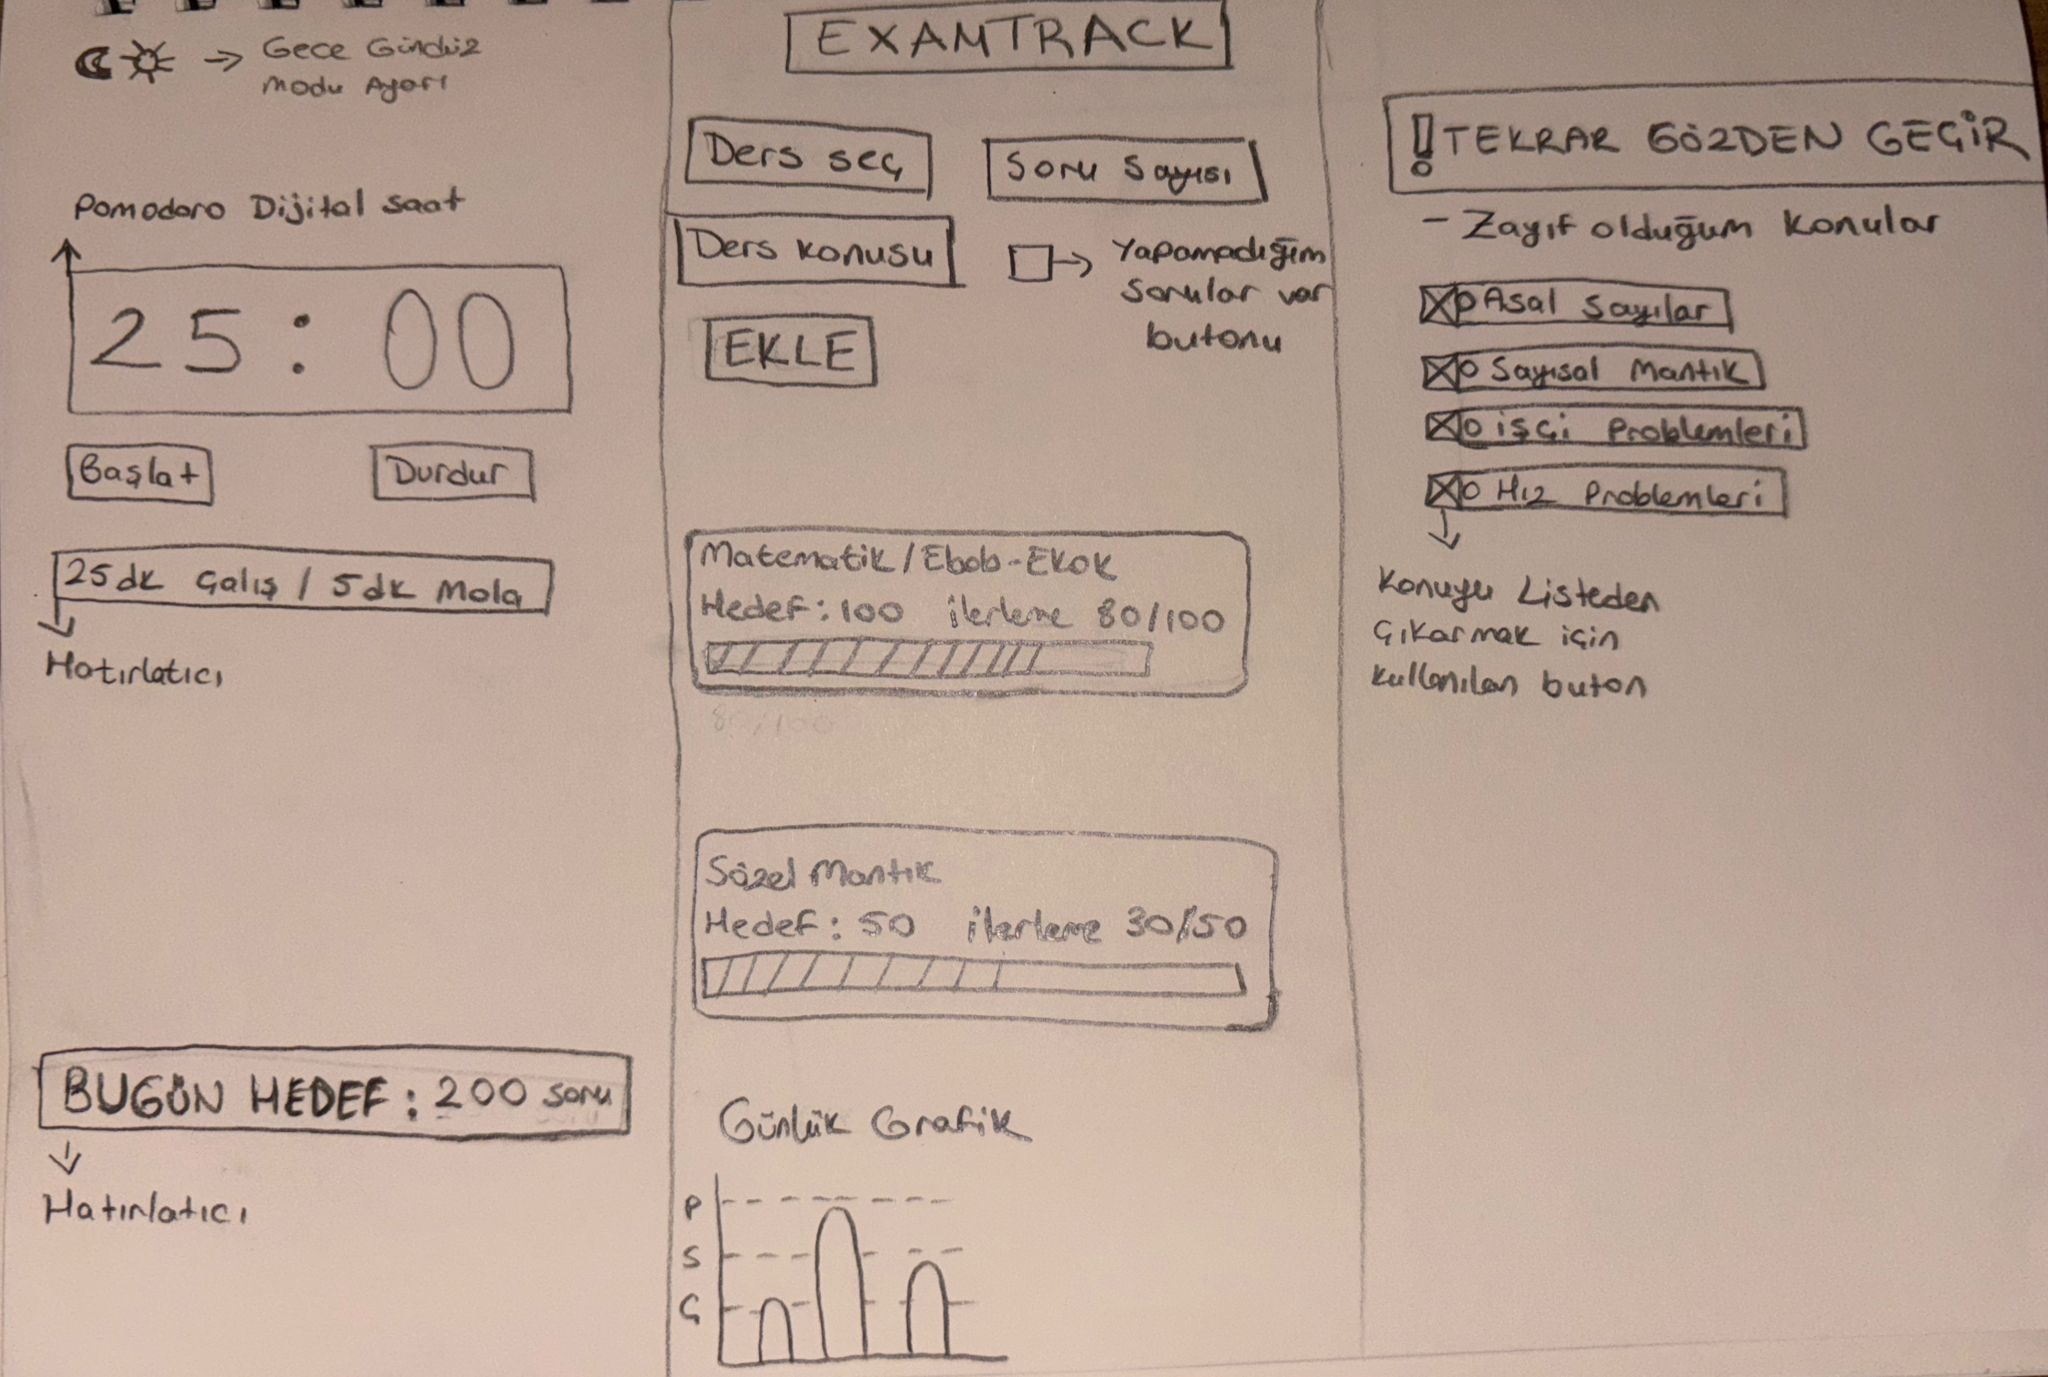 Gece Gündüz
Modu Ayarı
Pomodoro Dijital Saat
25:00
Başlat
Durdur
25dk Çalış / 5dk Mola
Hatırlatıcı
BUGÜN HEDEF: 200 soru
Hatırlatıcı
EXAMTRACK
Ders seç
Soru Sayısı
Ders Konusu
Yapamadığım
Sorular var
butonu
EKLE
Matematik / Ebob-Ekok
Hedef: 100 ilerleme 80/100
80/100
Sözel Mantık
Hedef: 50 ilerleme 30/50
Günlük Grafik
P
S
Ç
! TEKRAR GÖZDEN GEÇİR
- Zayıf olduğum Konular
Asal Sayılar
Sayısal Mantık
işçi Problemleri
Hız Problemleri
Konuyu Listeden
Çıkarmak için
kullanılan buton